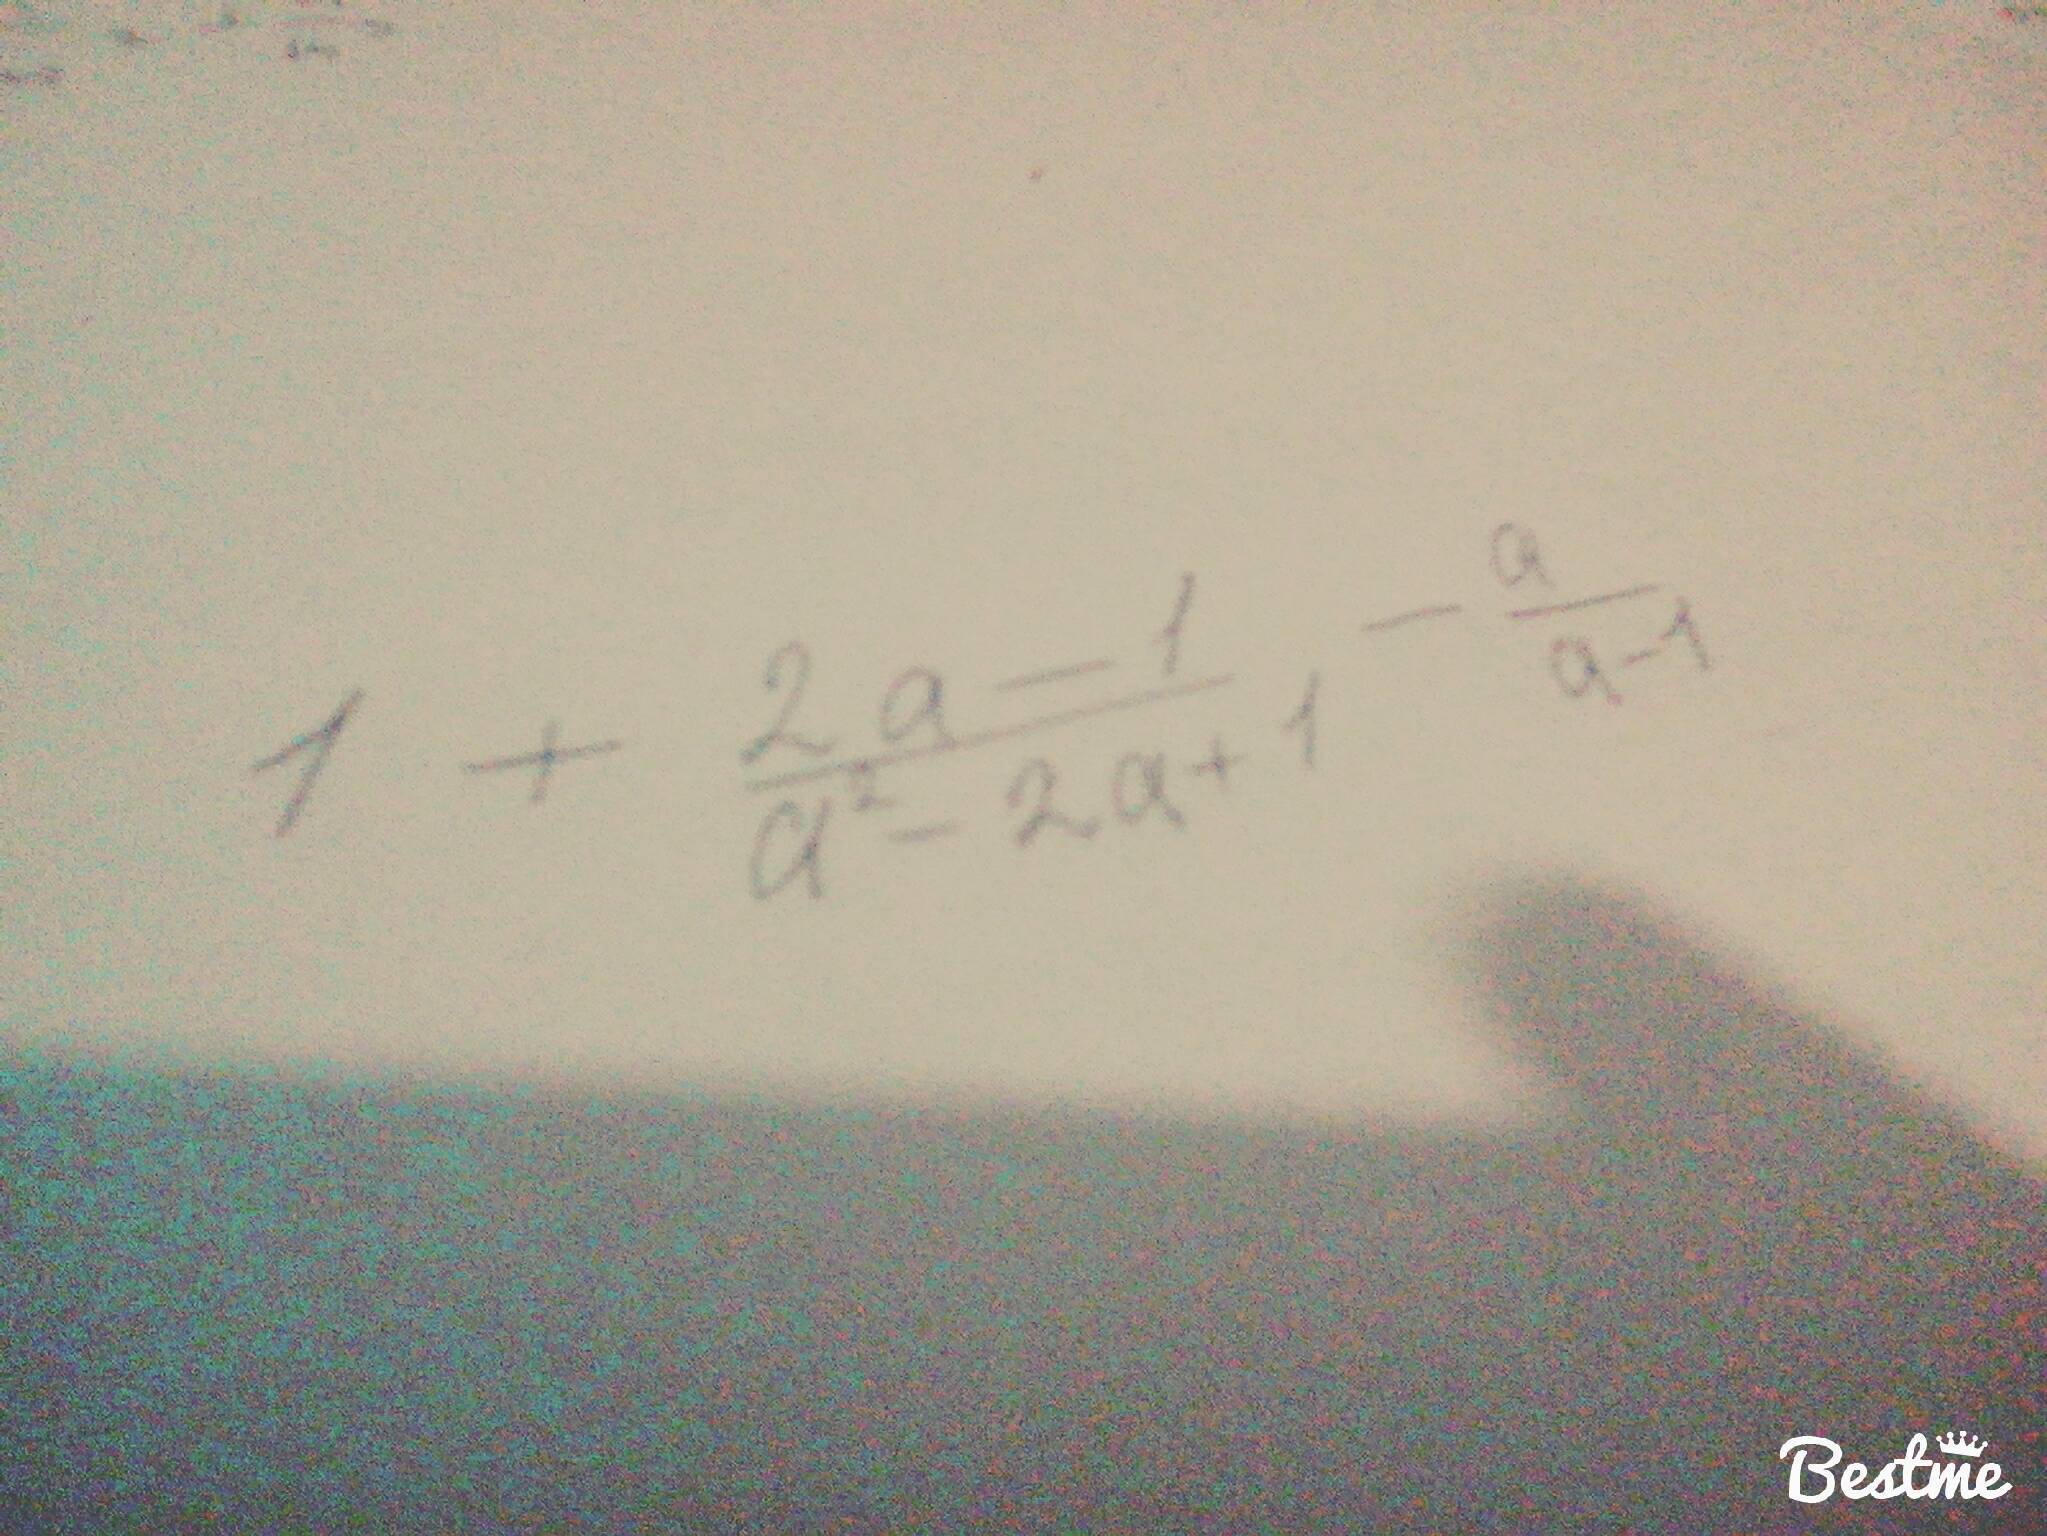 1 + \frac{2a-1}{a^2-2a+1} - \frac{a}{a-1}
Bestme